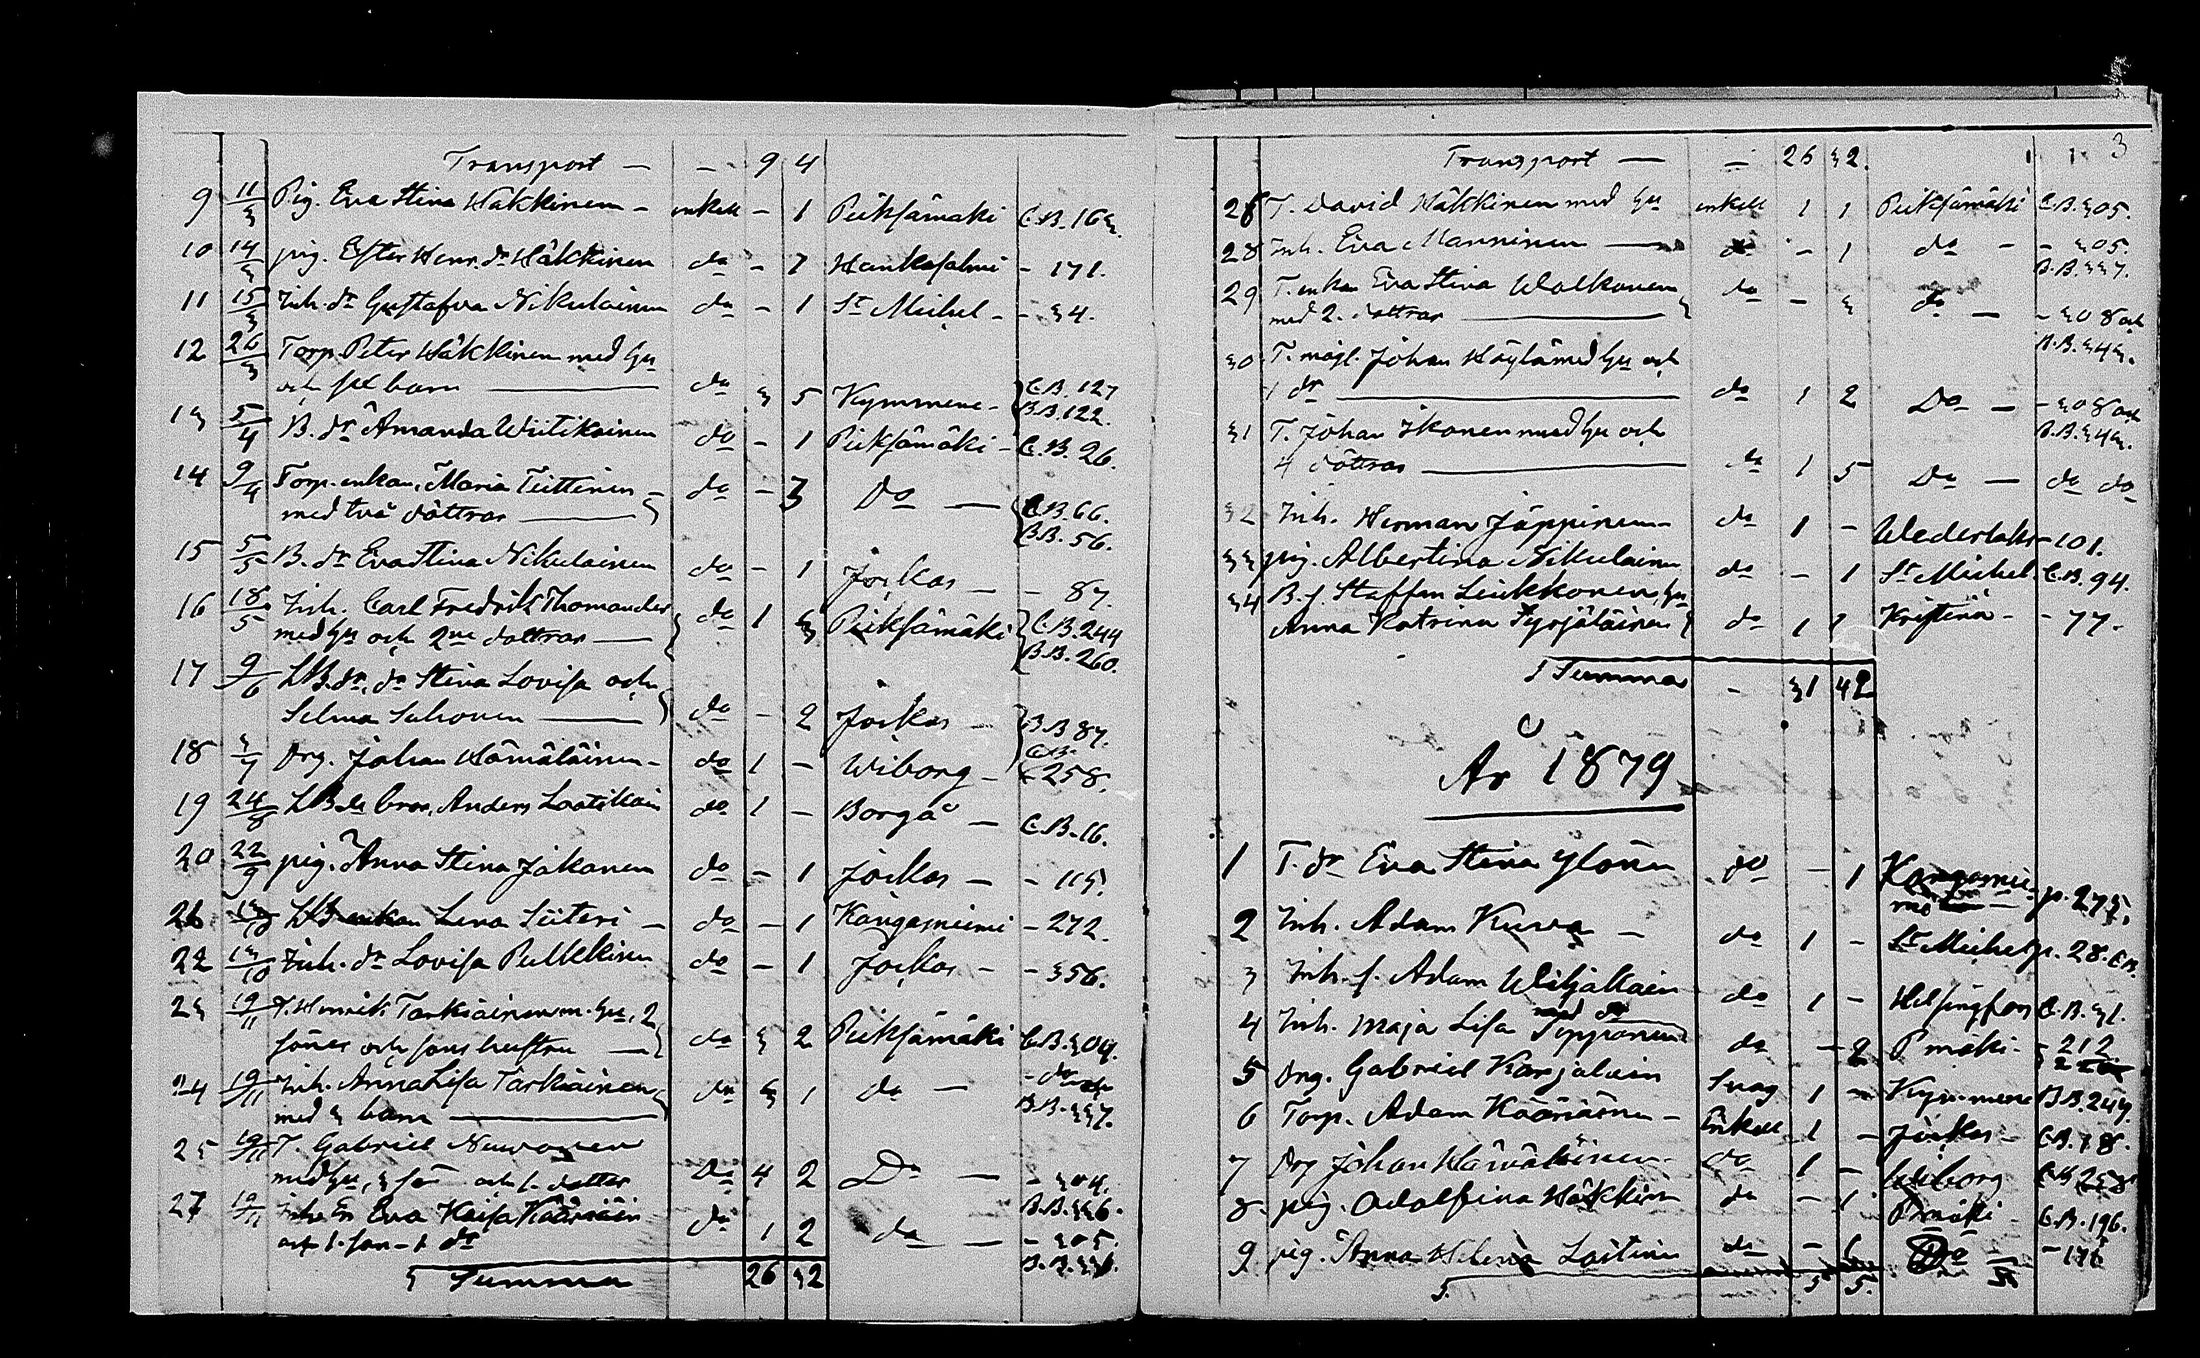 Transport — - 9 4
9 11/3 Pig. Eva Stina Häkkinen - enkell - 1 Pieksämäki C.B. 163.
10 14/3 pig. Ester Henr. dr Häkkinen do - 1 Hankasalmi - 171.
11 15/3 Inh. dr Gustafva Nikulainen do - 1 St Michel - - 34.
12 26/3 Torp. Peter Häkkinen med hu
och sex barn — do 3 5 Kymmene - C.B. 127 B.B. 122.
13 5/4 B. dr Amanda Wiitikainen do - 1 Pieksämäki - C.B. 26.
14 9/4 Torp. enkan Maria Tiittinen -
med två döttrar — do - 3 Do — C.B. 66. B.B. 56.
15 5/5 B. dr Eva Stina Nikulainen do - 1 Jockas — - 87.
16 18/5 Inh. Carl Fredrik Thomander
med hu och 2ne döttrar — do 1 3 Pieksämäki C.B. 244 B.B. 260.
17 9/6 LB. dr, dr Stina Lovisa och
Selma Salonen — do - 2 Jockas — B.B. 87.
18 3/7 Drg. Johan Hämäläinen - do 1 - Wiborg - C.B. 258.
19 24/8 Anders Laatikain do 1 - Borgå — C.B. 16.
20 22/9 pig. Anna Stina Jäkanen do - 1 Jockas — - 115.
21 13/10 LB enkan Lena Siiteri - do - 1 Kangasniemi - 272.
22 13/10 Inh. dr Lovisa Pulkkinen do - 1 Jockas - - 356.
23 19/11 T. Henrik Tarkiainen m. hu, 2
söner och sons hustru — do 3 2 Pieksämäki C.B. 304.
24 19/11 Inh. Anna Lisa Tarkiainen
med 3 barn — do 3 1 do — B.B. 337.
25 19/11 T. Gabriel Nuvonen
med hu, 3 sö och 1 dotter Do 4 2 Do — - 304. B.B. 336.
27 19/11 Eva Kaisa Kääriäin
och 1. son - 1 dr do 1 2 do — - 305.
Summa 26 32
3
Transport — - 26 32.
26 T. David Häkkinen med hu enkell 1 1 Pieksämäki C.B. 305.
28 Inh. Eva Manninen — do - 1 do - - 305. B.B. 337.
29 T. enkan Eva Stina Walkonen
med 2. döttrar — do - 3 do — - 308 och B.B. 343.
30 T. mågl. Johan Häylä med hu och
1 dr — do 1 2 Do — - 308 och B.B. 343.
31 T. Johan Ikonen med hu och
4 döttrar — do 1 5 Do — do do
32 Inh. Herman Jäppinen - do 1 - Wederlaks - 101.
33 pig. Albertina Nikulainen do - 1 St Michel C.B. 94.
34 B. s. Staffan Liukkonen, hu
Anna Katrina Pyrjäläinen do 1 1 Kristina - - 77.
Summa - 31 42
År 1879
1 T. dr Eva Stina Ylönen do - 1 Kangasnie- p. 275.
2 Inh. Adam Kuva - do 1 - St Michel p. 28. C.B.
3 Inh. s. Adam Wiljakain do 1 - Helsingfors C.B. 31.
4 Inh. Maja Lisa Tepponen med dr do - 2 Pmäki - 212
5 Drg. Gabriel Karjalain Svag 1 - Kymmene B.B. 249.
6 Torp. Adam Kääriäinen - Enkell 1 - Jockas - C.B. 18.
7 Drg Johan Hämäläinen - do 1 - Wiborg C.B. 258
8. pig. Adolfina Häkkin do - 1 Pmäki - C.B. 196.
9 pig. Anna Helena Laitinen do - 1 Do - 176
5 5.